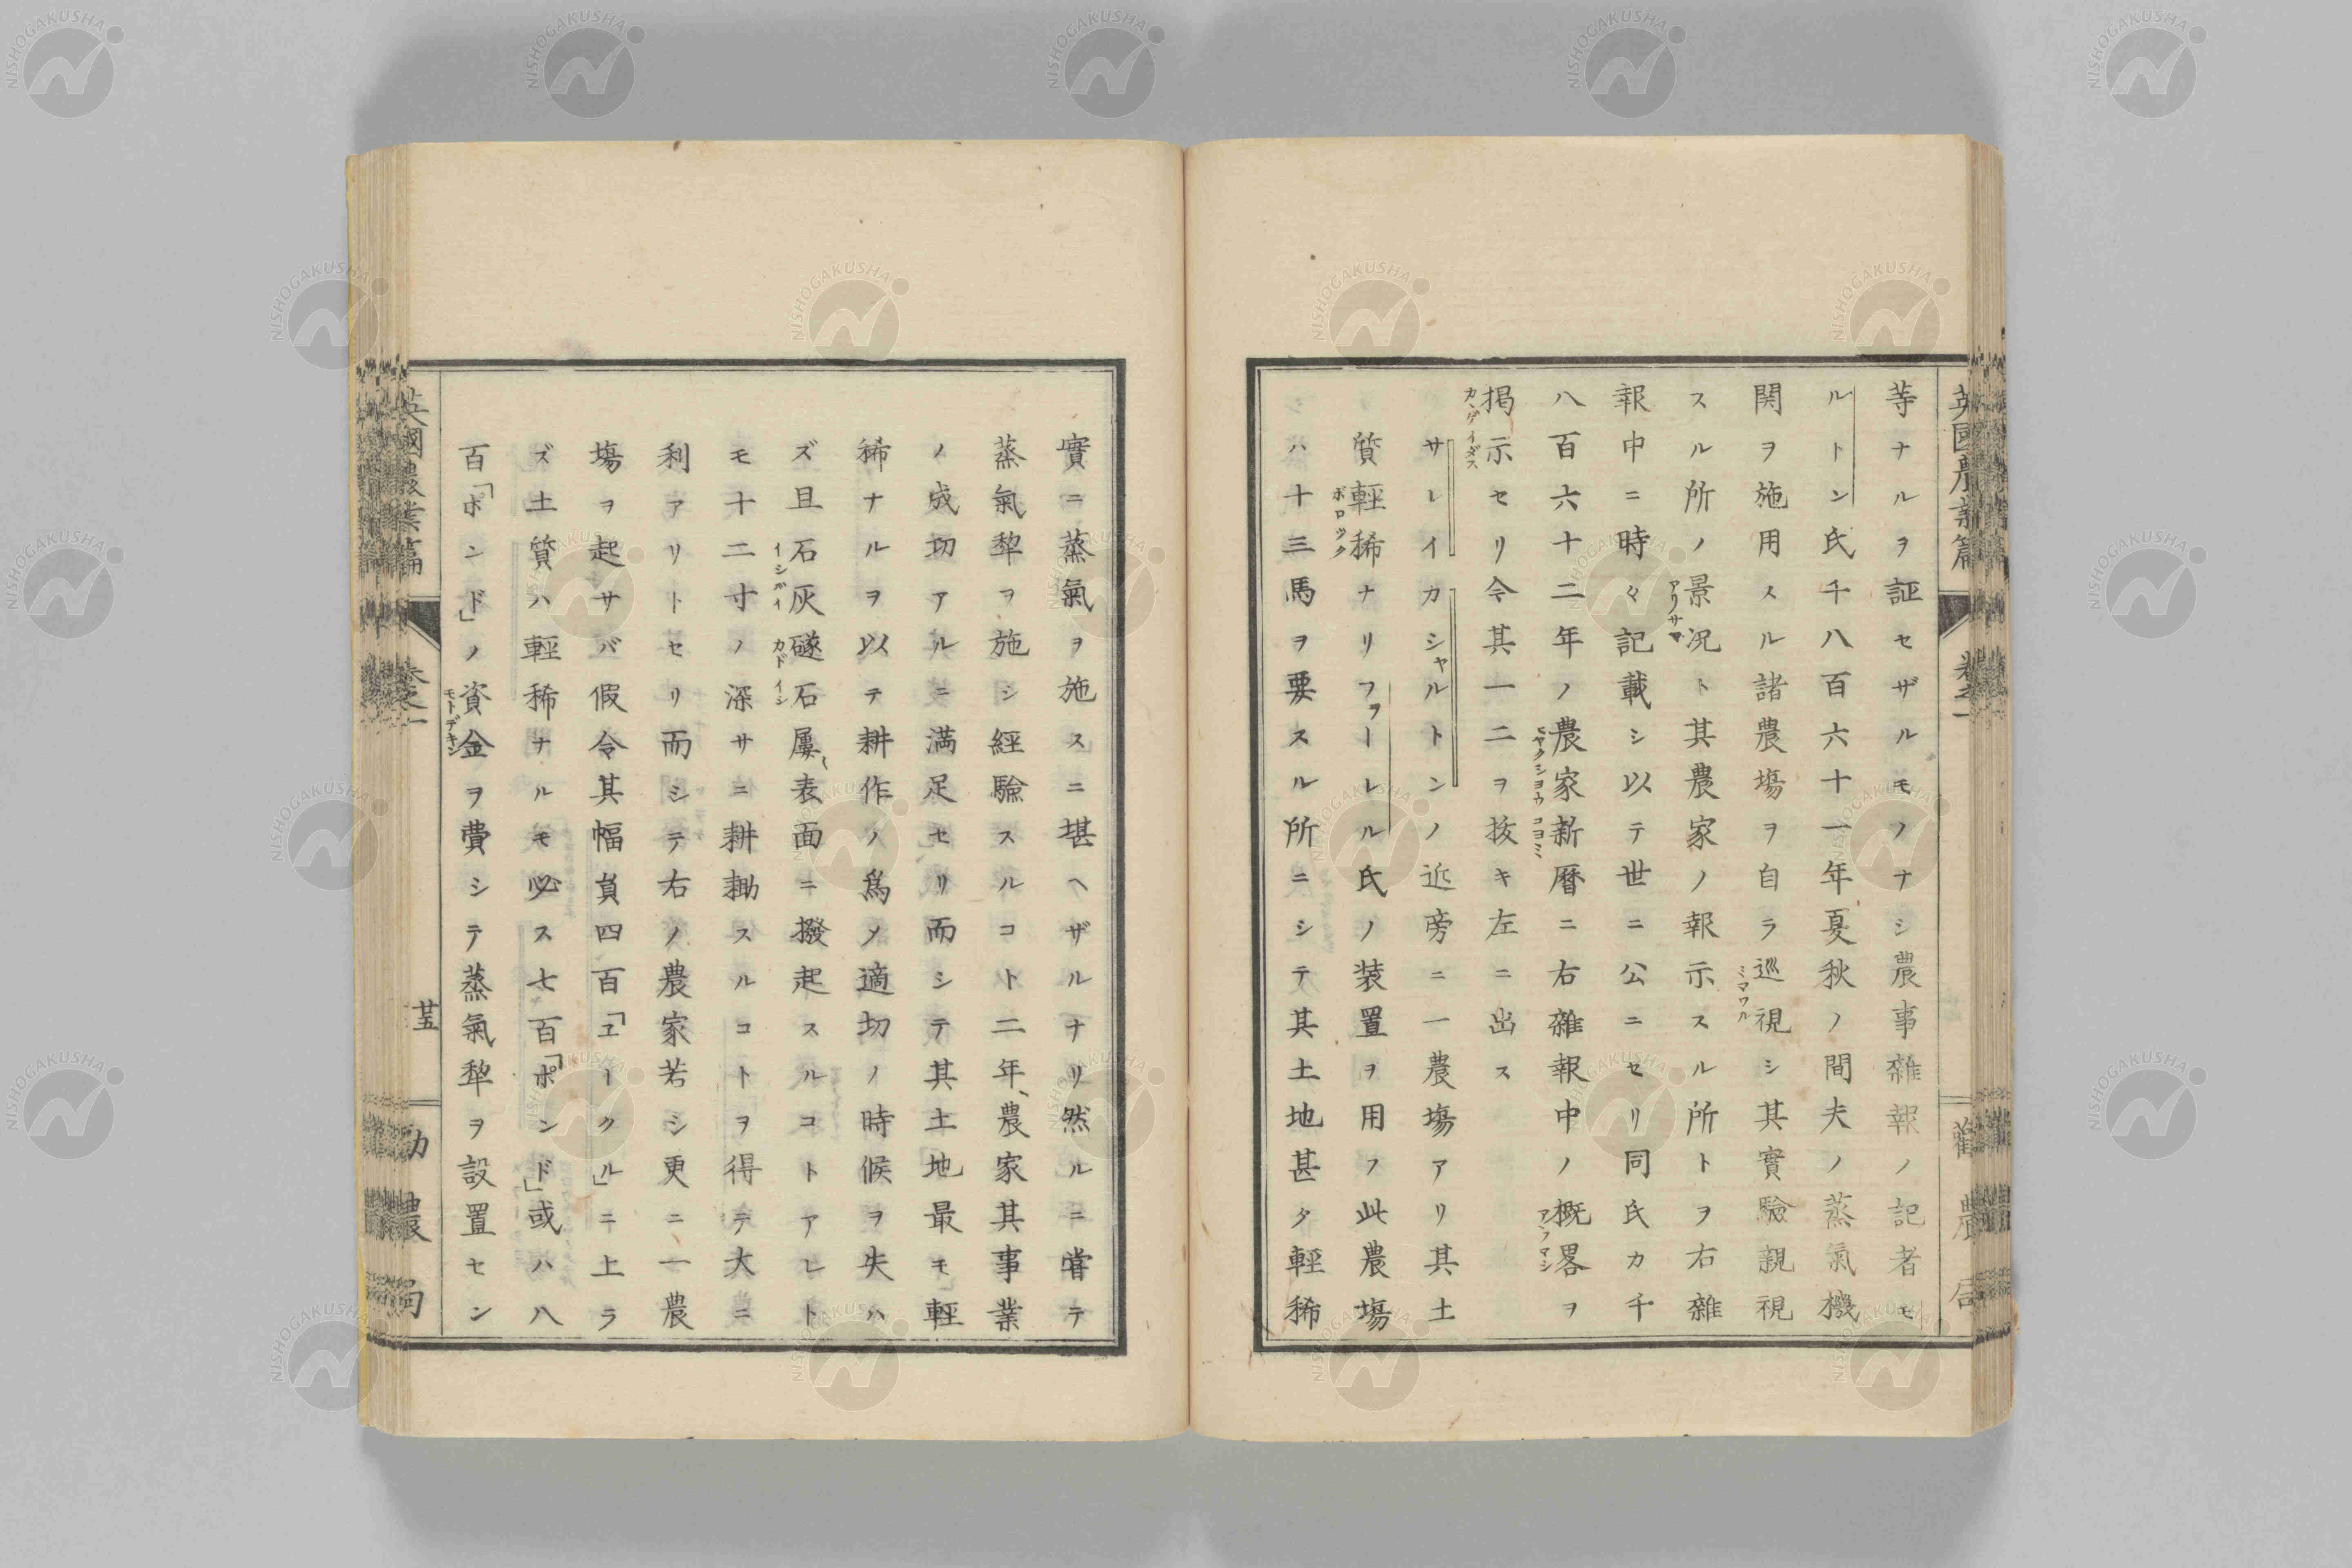 等ナルヲ証セザルモノナシ農事雜報ノ記者モ
ルトン氏千八百六十一年夏秋ノ間夫ノ蒸氣機
関ヲ施用スル諸農塲ヲ自ラ巡視シ其實驗親視
ミマワル
スル所ノ景况ト其農家ノ報示スル所トヲ右雜
アリサマ
報中ニ時々記載シ以テ世ニ公ニセリ同氏カ千
八百六十二年ノ農家新曆ニ右雜報中ノ概畧ヲ
ヒヤクシヨウコヨミ
アラマシ
掲示セリ今其一二ヲ抜キ左ニ出ス
カヽゲイダス
サレイカシャルトンノ近旁ニ一農塲アリ其土
質輕稀ナリフヲーレル氏ノ装置ヲ用フ此農塲
ボロツク
ハ十三馬ヲ要スル所ニシテ其土地甚タ輕稀
實ニ蒸氣ヲ施スニ堪ヘザルナリ然ルニ嘗テ
蒸氣犂ヲ施シ経驗スルコト二年、農家其事業
ノ成功アルニ満足セリ而シテ其土地最モ輕
稀ナルヲ以テ耕作ノ爲メ適切ノ時候ヲ失ハ
ズ且石灰礈石屢〻表面ニ撥起スルコトアレト
イシガイ
カドイシ
モ十二寸ノ深サニ耕耡スルコトヲ得テ大ニ
利アリトセリ而シテ右ノ農家若シ更ニ一農
塲ヲ起サバ假令其幅員四百「エークル」ニ上ラ
ズ土質ハ輕稀ナルモ必ス七百「ポンド」或ハ八
百「ポンド」ノ資金ヲ費シテ蒸氣犂ヲ設置セン
モトデキン
英國農業篇
卷之一
廿五
勸農局